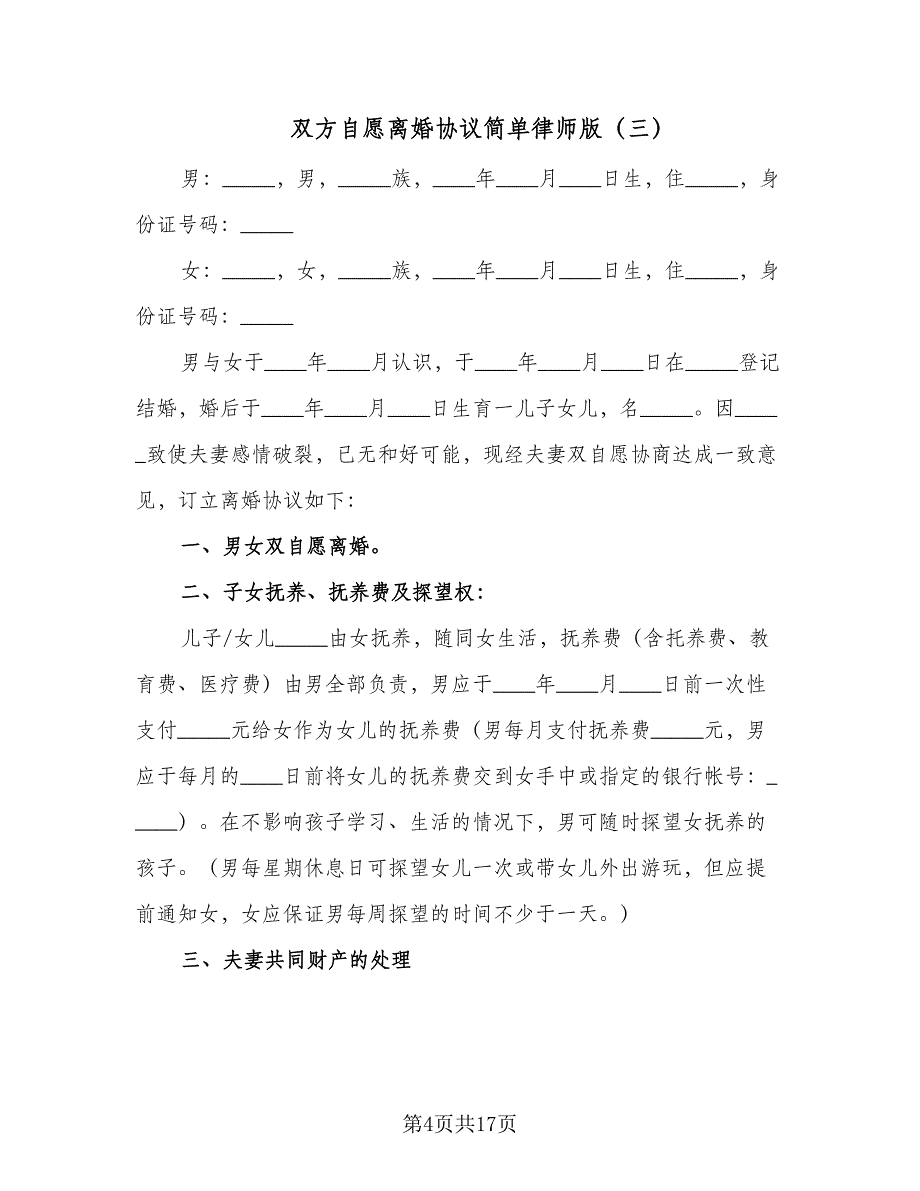 双方自愿离婚协议简单律师版（三）
男：_____，男，_____族，____年____月____日生，住_____，身
份证号码：_____
女：_____，女，_____族，____年____月____日生，住_____，身
份证号码：_____
男与女于____年____月认识，于____年____月____日在_____登记
结婚，婚后于____年____月____日生育一儿子女儿，名_____。因____
_致使夫妻感情破裂，已无和好可能，现经夫妻双自愿协商达成一致意
见，订立离婚协议如下：
一、男女双自愿离婚。
二、子女抚养、抚养费及探望权：
儿子/女儿_____由女抚养，随同女生活，抚养费（含托养费、教
育费、医疗费）由男全部负责，男应于____年____月____日前一次性
支付_____元给女作为女儿的抚养费（男每月支付抚养费_____元，男
应于每月的____日前将女儿的抚养费交到女手中或指定的银行帐号：_
____）。在不影响孩子学习、生活的情况下，男可随时探望女抚养的
孩子。（男每星期休息日可探望女儿一次或带女儿外出游玩，但应提
前通知女，女应保证男每周探望的时间不少于一天。）
三、夫妻共同财产的处理
第4页共17页